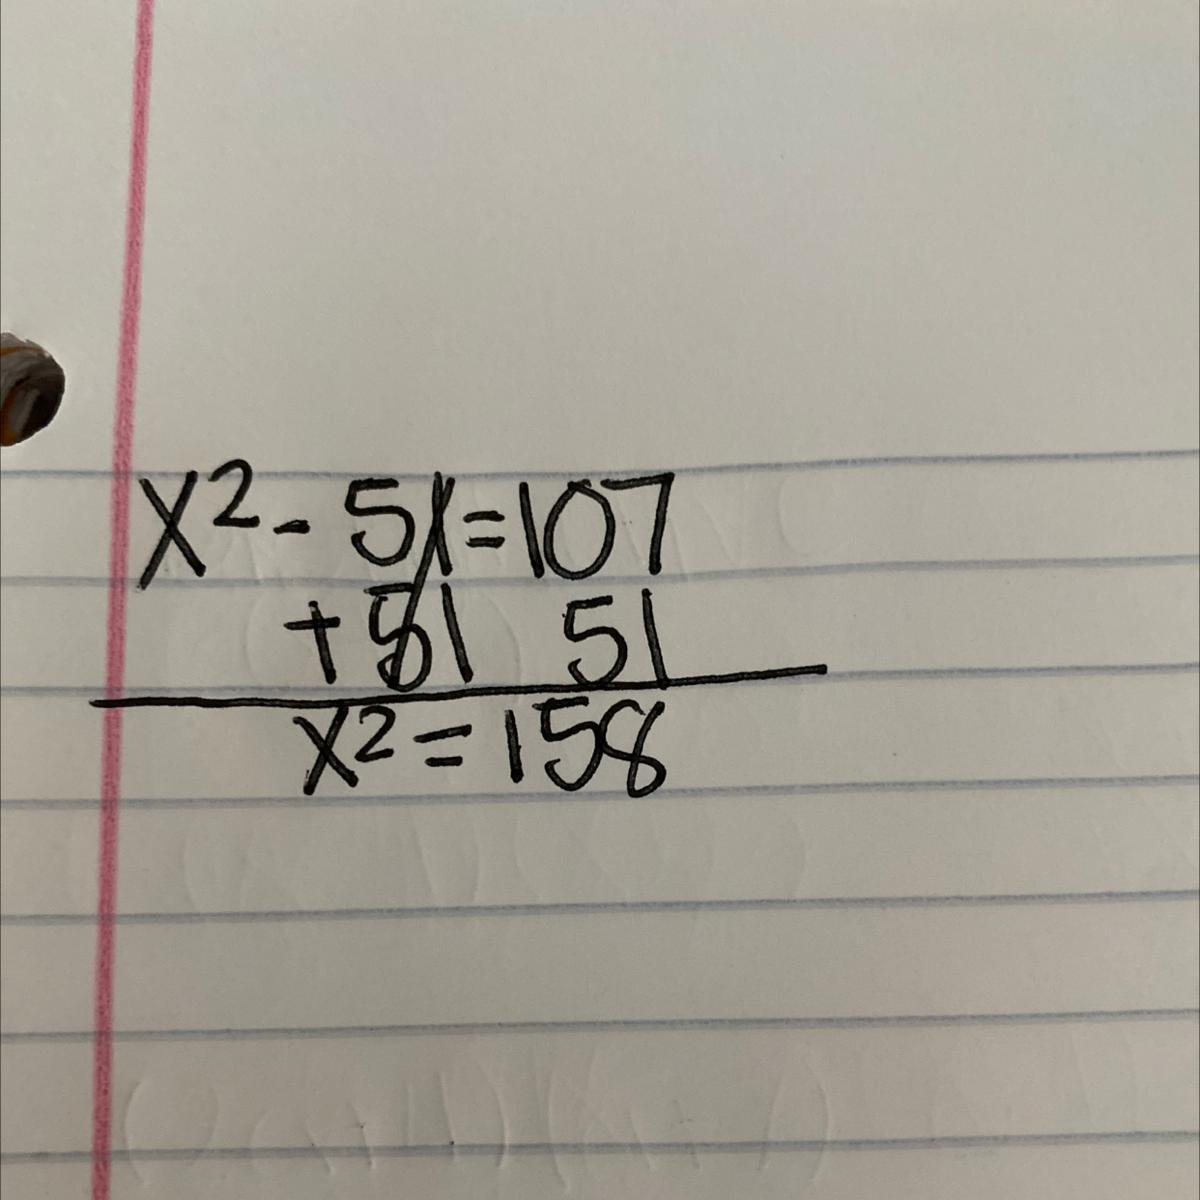 x² - 51 = 107
+ 51 51
x² = 158